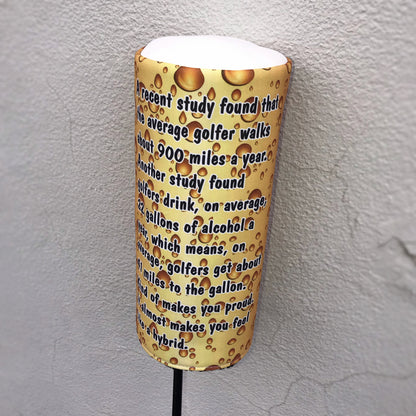 A recent study found that
the average golfer walks
about 900 miles a year.
Another study found
golfers drink, on average,
22 gallons of alcohol a
year, which means, on
average, golfers get about
miles to the gallon.
Kind of makes you proud,
almost makes you feel
a hybrid.